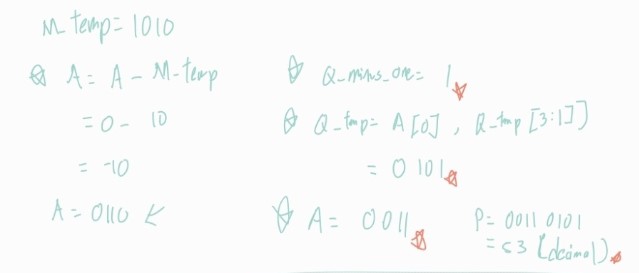 M_temp = 1010
A = A - M-temp
= 0 - 10
= -10
A = 0110
Q_minus_one = 1
Q_tmp = A[0], Q_tmp[3:1]]
= 0 101
A = 0011
P = 0011 0101
= 53 (decimal)